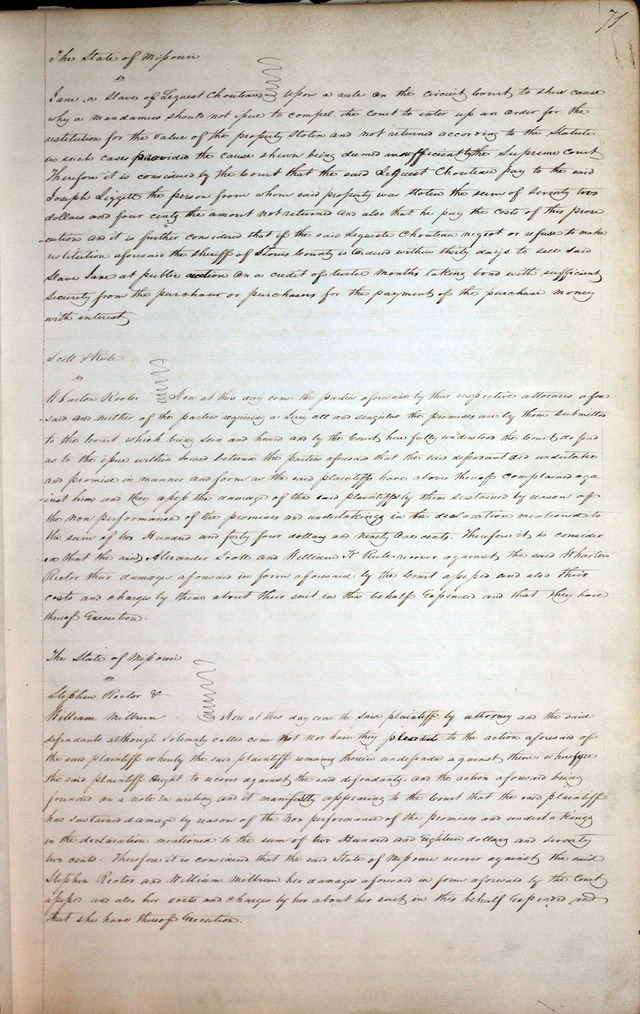 71
The State of Missouri
vs
Jane, a Slave of Liguest Chouteau } Upon a rule on the Circuit Court to shew cause
why a Mandamus should not issue to compel the Court to enter up an order for the
restitution for the value of the property stolen and not returned according to the Statute
in such cases provided the cause shewn being deemed insufficient by the Supreme Court
Therefore it is considered by the Court that the said Liguest Chouteau pay to the said
Joseph Liggett the person from whom said property was stolen the sum of seventy two
dollars and four cents the amount not returned and also that he pay the costs of this prose
cution and it is further considered that if the said Liguest Chouteau neglect or refuse to make
restitution aforesaid the Sheriff of St Louis County is Ordered within thirty days to sell said
Slave Jane at public auction on a credit of twelve months taking bond with sufficient
Security from the purchaser or purchasers for the payment of the purchase money
with interest
Scott & Rule
vs
Wharton Rector } Now at this day come the parties aforesaid by their respective attornies afore
said and neither of the parties requiring a Jury all and singular the premises are by them submitted
to the Court which being seen and heard and by the Court here fully understood the Court do find
as to the issue within Joined between the parties aforesaid that the said defendant did undertake
and promise in manner and form as the said plaintiffs have above thereof complained aga
inst him and they assess the damage of the said plaintiffs by them sustained by reason of
the Non performance of the promises and undertakings in the declaration mentioned to
the sum of two Hundred and forty four dollars and Ninety One cents. Therefore it is consider
ed that the said Alexander Scott and William K Rule recover against the said Wharton
Rector their damages aforesaid in form aforesaid by the Court assessed and also their
costs and charges by them about their suit in this behalf Expended and that they have
thereof Execution.
The State of Missouri
vs
Stephen Rector &
William Milburn } Now at this day come the said plaintiff by attorney and the said
defendants although Solemnly called come not nor have they pleaded to the action aforesaid of
the said plaintiff whereby the said plaintiff remains therein undefended against them wherefore
the said plaintiff Ought to recover against the said defendants. and the action aforesaid being
founded on a note in writing and it manifestly appearing to the Court that the said plaintiff
has sustained damage by reason of the Non performance of the promises and undertakings
in the declaration mentioned to the sum of two Hundred and Eighteen dollars and seventy
two cents. Therefore it is considered that the said State of Missouri recover against the said
Stephen Rector and William Milburn her damages aforesaid in form aforesaid by the Court
assessed and also her costs and charges by her about her suit in this behalf Expended and
that she have thereof Execution.